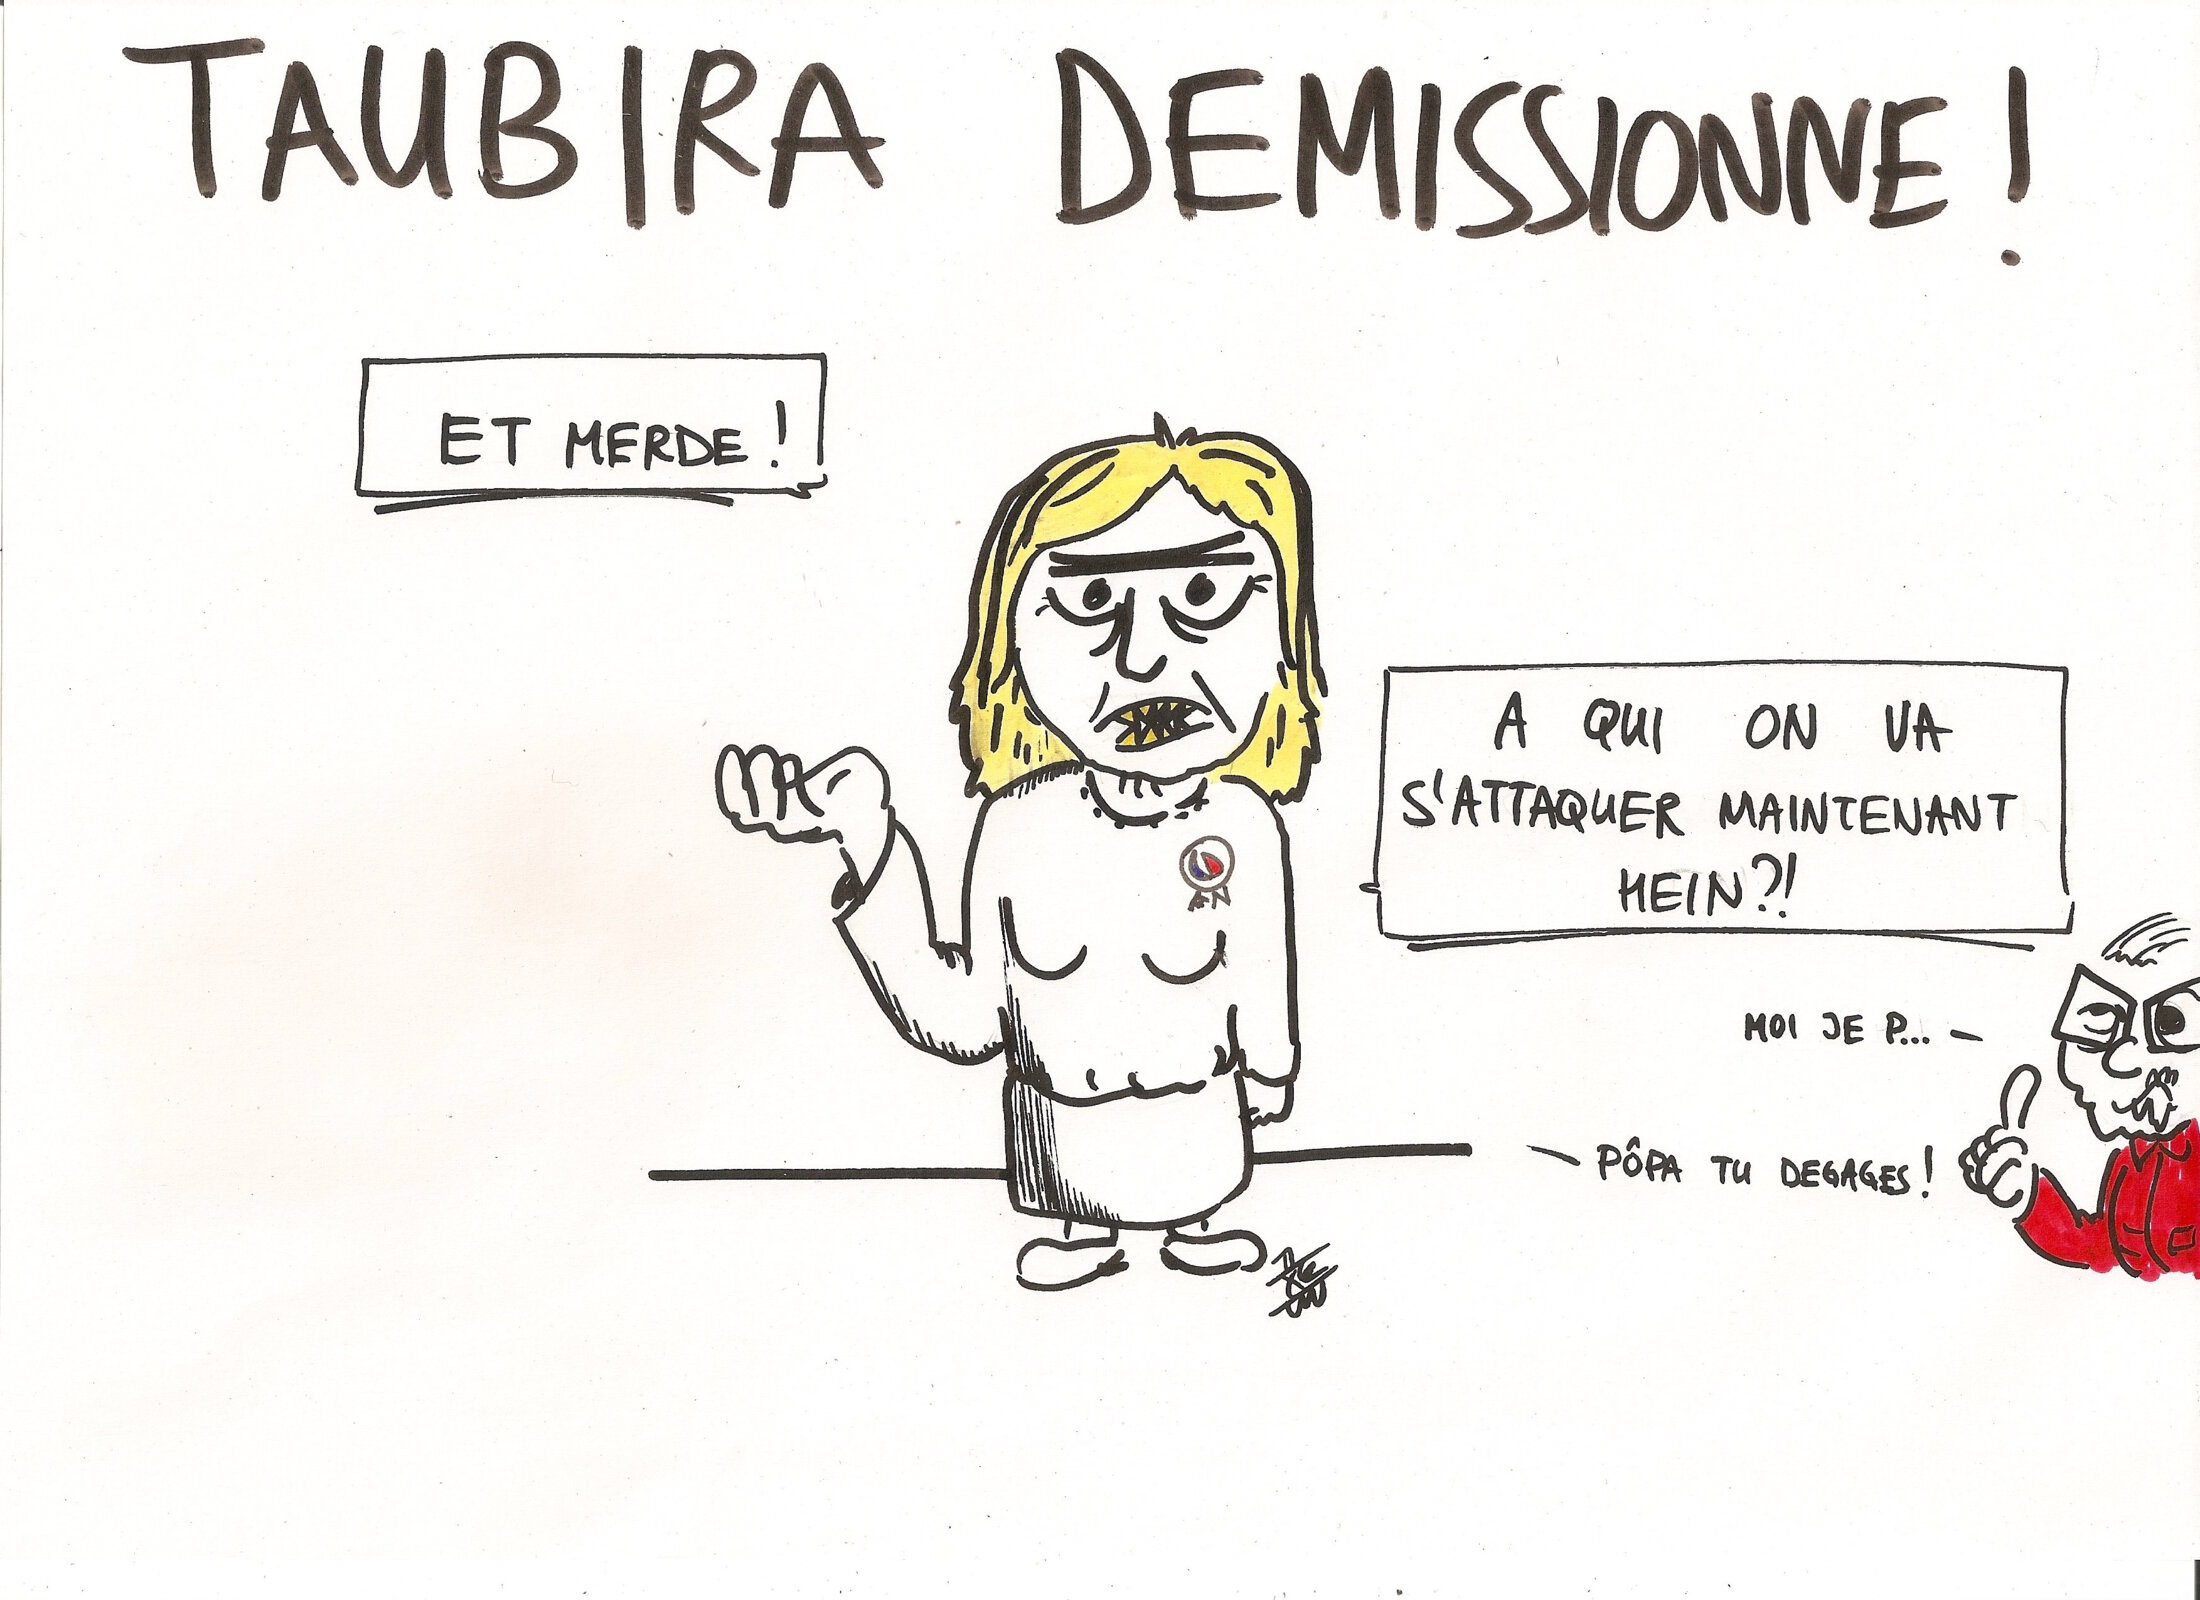 TAUBIRA DEMISSIONNE !
ET MERDE !
A QUI ON VA
S'ATTAQUER MAINTENANT
HEIN ?!
MOI JE P...
PÔPA TU DEGAGES !